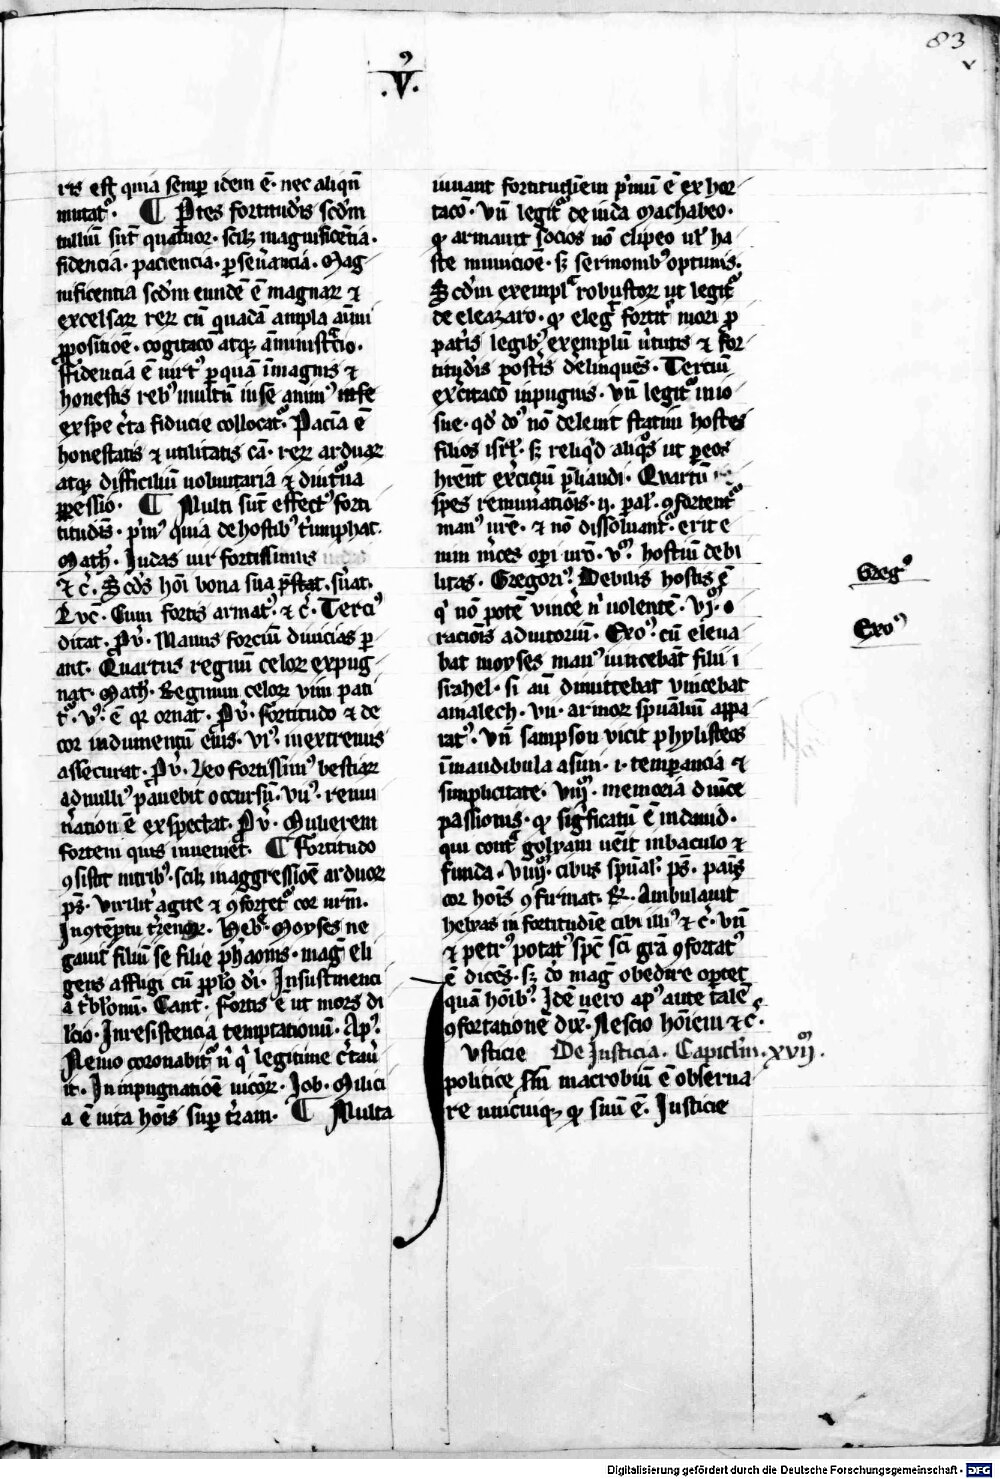 83
.V.
ris est quia semper idem ē · nec aliqn̄
mutat᷒ · ¶ Ptes fortitudīs scd̄m
tulliū sūt quatuor · scilꝫ magnificēcia ·
fidencia · paciencia · ꝑseuācia · Mag
nificentia scd̄m eundē ē magnaꝝ ⁊
excelsaꝝ reꝝ cū quadā ampla aīmi
ꝓpositiōe · cogitacō atqꝫ āministrc̄io ·
ffidencia ē uirtꝰ ꝑ quā ī magnis ⁊
honestis rebꝰ multū in se animꝰ
ex spe c̄ta fiducie collocat᷒ · Pacīa ē
honestatis ⁊ utilitatis cā · reꝝ arduaꝝ
atqꝫ difficiliū uoluntaria ⁊ diut᷒na
ꝑpessio · ¶ Multi sūt effectꝰ forti
titudīs · p̄mꝰ quia de hostibꝰ t̄umphat ·
Math̄ · Judas uir fortissimus
⁊ c̄ · Scd̄s hoī bona sua p̄stat · ſ̄uat ·
Luc̄ · Cum fortis armatꝰ ⁊ c̄ · Terciꝰ
ditat · Pū · Manus forciū diuicias ꝑ
ant · Quartus regnū celoꝝ expug
nat · Math̄ · Regnum celoꝝ vim pati
t᷒ · vꝰ · ē qꝛ ornat · Pū · fortitudo ⁊ de
cor indumentū eius · viꝰ · in extremis
assecurat · Pū · Leo fortissimꝰ bestiaꝝ
ad nulliꝰ pauebit occursū · vıı̄ꝰ · remu
n̄ation ē exspectat · Pū · Mulierem
fortem quis inueniet · ¶ Fortitudo
ꝯsistit in tribꝰ · scilꝫ in aggressiōe arduoꝝ
pˢ̄ · Virilit̄ agite ⁊ ꝯfortet᷒ cor ur̄m ·
In ꝯtēptu t̄renoꝝ · Heb̄ · Moyses ne
gauit filiū se filie ph̄aonis · maḡ eli
gens affligi cū ꝑplo dī · In sustinenci
a t̄blōnū · Cant · fortis ē ut mors di
lc̄io · In resistencia temptationū · Apꝰ ·
Nemo coronabit᷒ n̄ q̄ legitime c̄tau̇
it · In inpugnatiōe uicōꝝ · Job · Milici
a ē uita hoīs suꝑ t̄ram · ¶ Multa
iuuant fortitudīem p̄mū ē exhor
tacō · Vn̄ legit᷒ de iuda Machabeo ·
ꝙ armauit socios nō clipeo ul̄ ha
ste municiōe · sꝫ sermonibꝰ optimis ·
Scd̄m exempl᷒ robustoꝝ ut legit᷒
de eleazaro · ꝙ eleg᷒ fortit᷒ mori ꝓ
patīs legibꝰ exemplū ūtutis ⁊ for
titudīs posteīs delinquēs · Terciū
excitacō in pugnis · Vn̄ legit᷒ in io
sue · qd̄ dō nō deleuit statim hostes
filios isrl̄ · sꝫ reliqd̄ aliqōs ut ꝑ eos
hrēnt ex̄iciū p̄liandi · Quartū
spes remun̄atiōis · ij · pal̄ · ꝯfortent᷒
manꝰ ur̄e · ⁊ nō dissoluant᷒ · erit e
nim m̄ces opī ur̄o · vꝰ · hostiū debi
litas · Gregoriꝰ · Debilis hostis ē
q̄ nō potē vincē nī uolentē · vjꝰ · o
raciōis adiutoriū · Exoꝰ · cū eleua
bat moyses manꝰ uincebāt filii i
srahel · si aū dimittebat vincebat
amalech · vıı · armoꝝ spūaliū appa
ratꝰ · Vn̄ sampson vicit phylisteos
ī mandibula asini · i · temꝑancia ⁊
simplicitate · viijꝰ · memoria diuīe
passionis · ꝙ sig̅ficatū ē in dauid ·
qui cont᷒ golyam uēit in baculo ⁊
funda · viiijꝰ · cibus spūal̄ · pˢ̄ · paīs
cor hoīs ꝯfirmat · R · Ambulauit
helyas in fortitudīe cibi illiꝰ ⁊ c̄ · Vn̄
⁊ petrꝰ potatꝰ spc̄ scī gra ꝯfortatꝰ
ē dicēs · sꝫ dō mag̅ obedire oꝑtet
quā hōibꝰ · Idē uero apꝰ ante talē
ꝯfortationē dix̄ · Nescio hōiem ⁊ c̄ ·
Iusticie De Justicia · Capitl̄m · xviij ·
politice scd̄m macrobiū ē obserua
re unicuiqꝫ ꝙ suū ē · Justicie
Gregꝰ
Exoꝰ
Digitalisierung gefördert durch die Deutsche Forschungsgemeinschaft - DFG